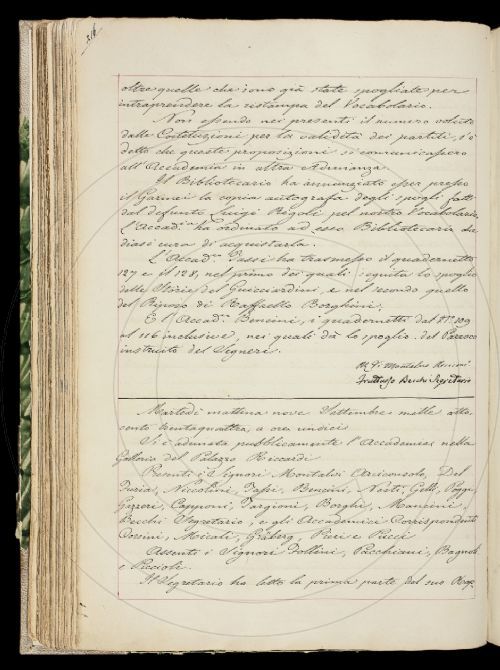 316
oltre quelle che sono già state spogliate per
intraprendere la ristampa del Vocabolario.
Non essendo nei presenti il numero voluto
dalle Costituzioni per la validità dei partiti, s'è
detto che queste proposizioni si comunicassero
all'Accademia in altra Adunanza.
Il Bibliotecario ha annunziato esser presso
il la copia autografa degli spogli fatti
dal defunto Luigi Rigoli pel nostro Vocabolario,
l'Accad.ia ha ordinato ad esso Bibliotecario che
diasi cura di acquistarla.
L'Accad.co Tassi ha trasmesso il quadernetto
127 e il 128, nel primo dei quali seguita lo spoglio
delle Storie del Guicciardini, e nel secondo quello
del Riposo di Raffaello Borghini.
E l'Accad.co Bencini, i quadernetti dal N.o 109
al 116 inclusive, nei quali dà lo spoglio del Parroco
instruito del Segneri.
Montalvi
Fruttuoso Becchi Segretario
Martedì mattina nove Settembre mille otto
cento trentaquattro, a ore undici
Si è adunata pubblicamente l'Accademia nella
Galleria del Palazzo Riccardi
Presenti i Signori Montalvi Arciconsolo, Del
Furia, Niccolini, Tassi, Bencini, Nesti, Gelli, Poggi,
Gazzeri, Capponi, Targioni, Borghi, Mancini,
Becchi Segretario, e gli Accademici Corrispondenti
Orsini, Micali, Gräberg, Pieri e Pucci
Assenti i Signori Follini, Pacchiani, Bagnoli
e Piccioli.
Il Segretario ha letto la prima parte del suo Rap